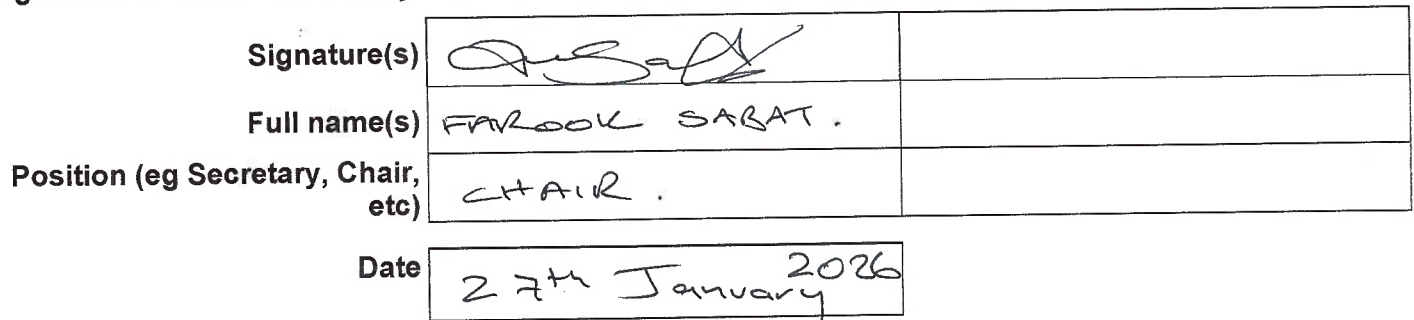 Signature(s)
Full name(s) FAROOK SABAT.
Position (eg Secretary, Chair, CHAIR.
etc)
Date 27th January 2026